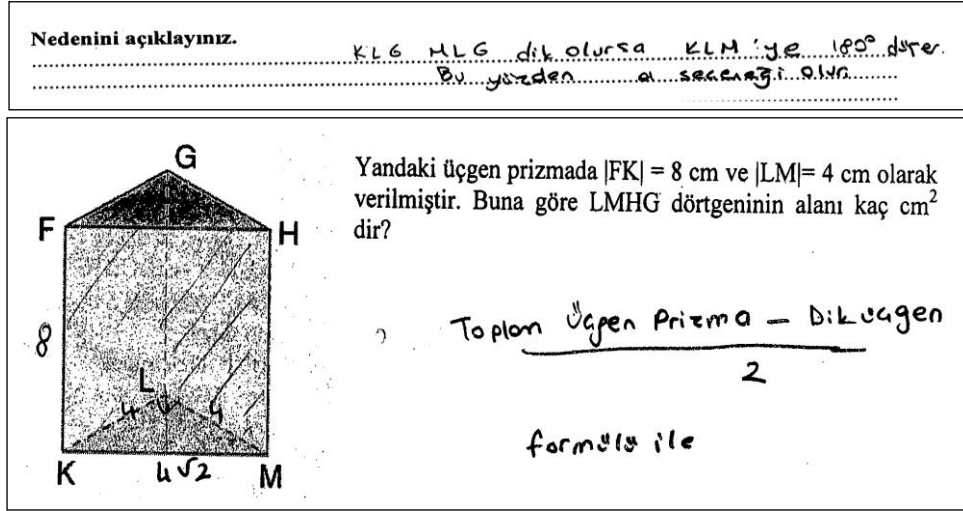 Nedenini açıklayınız.
KLG MLG dik olursa KLM'ye 180° düşer.
Bu yüzden a seçeneği olur.
G
F
H
8
L
4 4
K
4√2
M
Yandaki üçgen prizmada |FK| = 8 cm ve |LM|= 4 cm olarak
verilmiştir. Buna göre LMHG dörtgeninin alanı kaç cm²
dir?
Toplam Üçgen Prizma – Dik üçgen
2
formülü ile